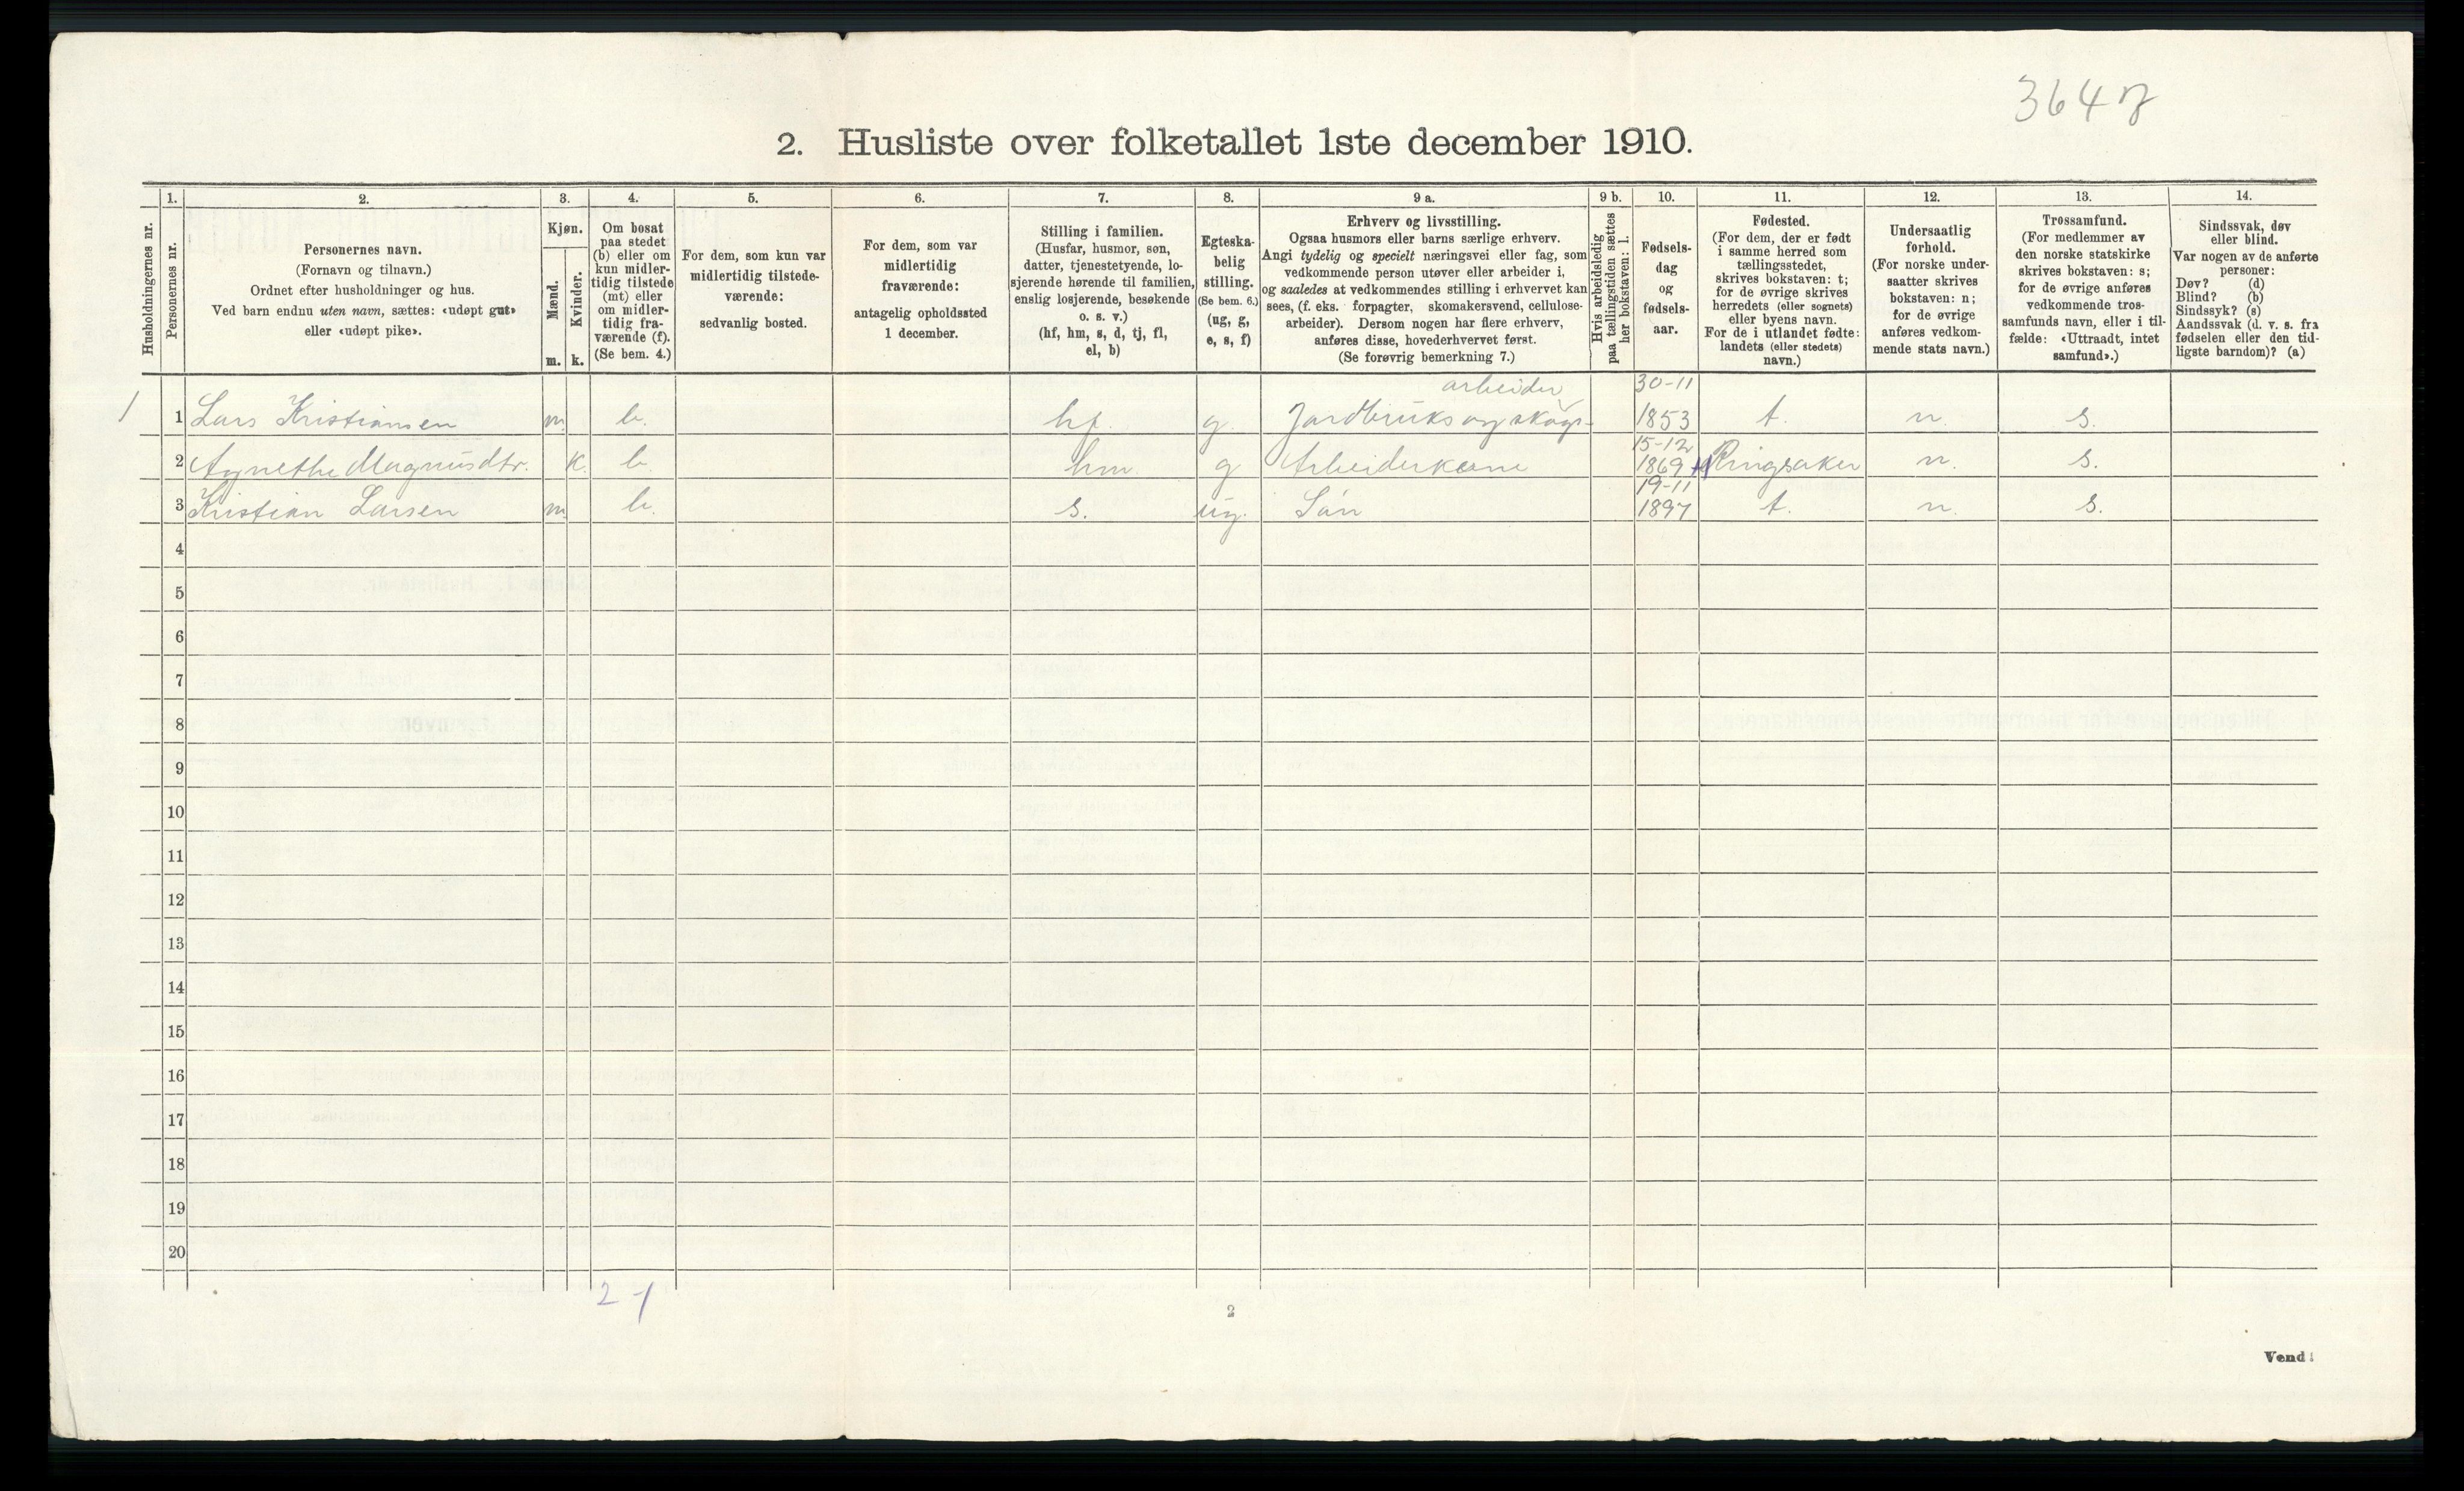 3647
2. Husliste over folketallet 1ste december 1910.
Husholdningernes nr.
1.
Personernes nr.
2.
Personernes navn.
(Fornavn og tilnavn.)
Ordnet efter husholdninger og hus.
Ved barn endnu uten navn, sættes: «udøpt gut»
eller «udøpt pike».
3.
Kjøn.
Mænd.
m.
Kvinder.
k.
4.
Om bosat
paa stedet
(b) eller om
kun midler-
tidig tilstede
(mt) eller
om midler-
tidig fra-
værende (f).
(Se bem. 4.)
5.
For dem, som kun var
midlertidig tilstede-
værende:
sedvanlig bosted.
6.
For dem, som var
midlertidig
fraværende:
antagelig opholdssted
1 december.
7.
Stilling i familien.
(Husfar, husmor, søn,
datter, tjenestetyende, lo-
sjerende hørende til familien,
enslig losjerende, besøkende
o. s. v.)
(hf, hm, s, d, tj, fl,
el, b)
8.
Egteska-
belig
stilling.
(Se bem. 6.)
(ug, g,
e, s, f)
9 a.
Erhverv og livsstilling.
Ogsaa husmors eller barns særlige erhverv.
Angi tydelig og specielt næringsvei eller fag, som
vedkommende person utøver eller arbeider i,
og saaledes at vedkommendes stilling i erhvervet kan
sees, (f. eks. forpagter, skomakersvend, cellulose-
arbeider). Dersom nogen har flere erhverv,
anføres disse, hovederhvervet først.
(Se forøvrig bemerkning 7.)
9 b.
Hvis arbeidsledig
paa tællingstiden sættes
her bokstaven: l.
10.
Fødsels-
dag
og
fødsels-
aar.
11.
Fødested.
(For dem, der er født
i samme herred som
tællingsstedet,
skrives bokstaven: t;
for de øvrige skrives
herredets (eller sognets)
eller byens navn.
For de i utlandet fødte:
landets (eller stedets)
navn.)
12.
Undersaatlig
forhold.
(For norske under-
saatter skrives
bokstaven: n;
for de øvrige
anføres vedkom-
mende stats navn.)
13.
Trossamfund.
(For medlemmer av
den norske statskirke
skrives bokstaven: s;
for de øvrige anføres
vedkommende tros-
samfunds navn, eller i til-
fælde: «Uttraadt, intet
samfund».)
14.
Sindssvak, døv
eller blind.
Var nogen av de anførte
personer:
Døv? (d)
Blind? (b)
Sindssyk? (s)
Aandssvak (d. v. s. fra
fødselen eller den tid-
ligste barndom)? (a)
arbeider 30-11
1 1 Lars Kristiansen m. b. hf. g. Jordbruks og skogs- 1853 t. n. s.
15-12
2 Agnethe Magnusdtr. k. b. hm. g Arbeiderkone 1869 Ringsaker n. s.
19-11
3 Kristian Larsen m. b. s. ug. Sön 1897 t. n. s.
4
5
6
7
8
9
10
11
12
13
14
15
16
17
18
19
20
2-1
2
Vend!